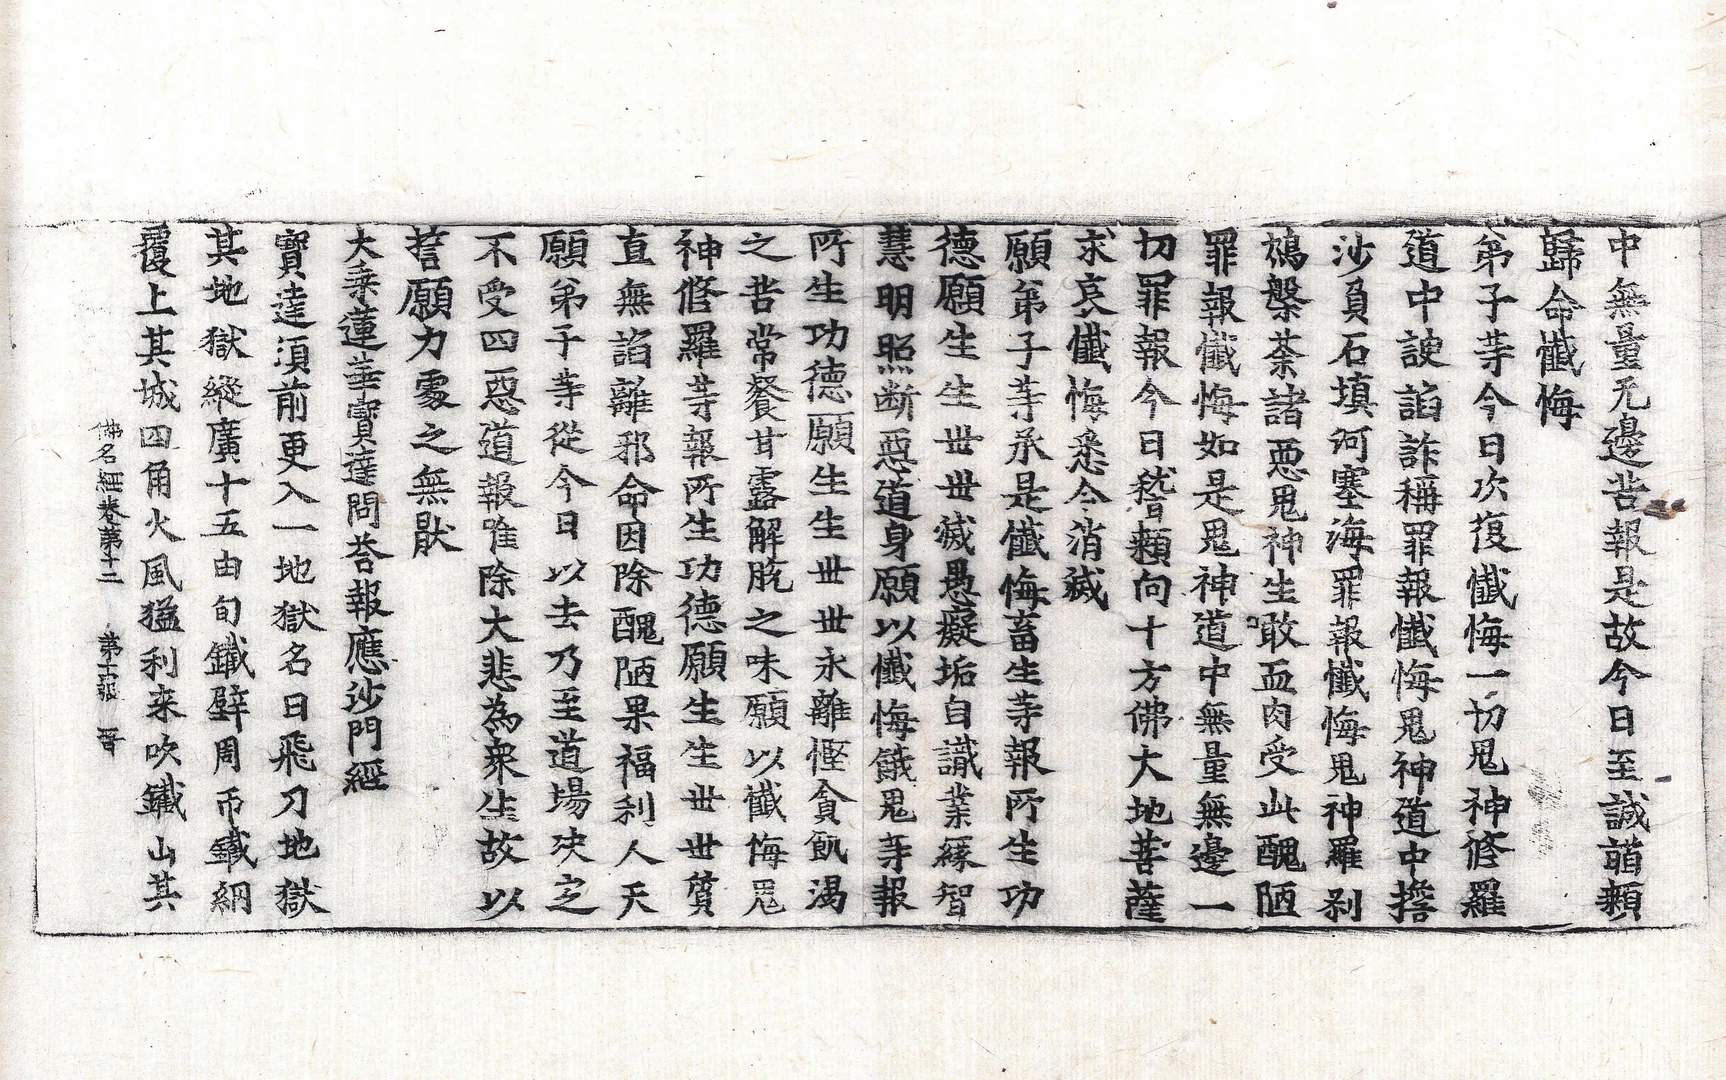 中無量无邊苦報是故今日至誠𥡴顙
歸命懺悔
弟子䓁今日次復懺悔一切鬼神修羅
道中諛謟詐稱罪報懺悔鬼神道中擔
沙負石填河塞海罪報懺悔鬼神羅剎
鳩槃荼諸惡鬼神生敢血肉受此醜陋
罪報懺悔如是鬼神道中無量無邊一
切罪報今日稽顙向十方佛大地菩薩
求哀懺悔悉令消滅
願弟子䓁承是懺悔畜生䓁報所生功
德願生生世世滅愚癡垢自識業緣智
慧明照断惡道身願以懺悔餓鬼䓁報
所生功德願生生世世永離慳貪飢渴
之苦常餐甘露解脫之味願以懺悔鬼
神修羅䓁報所生功德願生生世世質
直無謟離邪命因除醜陋果福利人天
願弟子䓁從今日以去乃至道場決㝎
不受四惡道報唯除大悲為衆生故以
誓願力處之無猒
大乗蓮華寶達問荅報應沙門經
寶達須前更入一地獄名曰飛刀地獄
其地獄縱廣十五由旬鐵壁周帀鐵網
覆上其城四角火風猛利来吹鐵山其
佛名經卷第十二 第十張